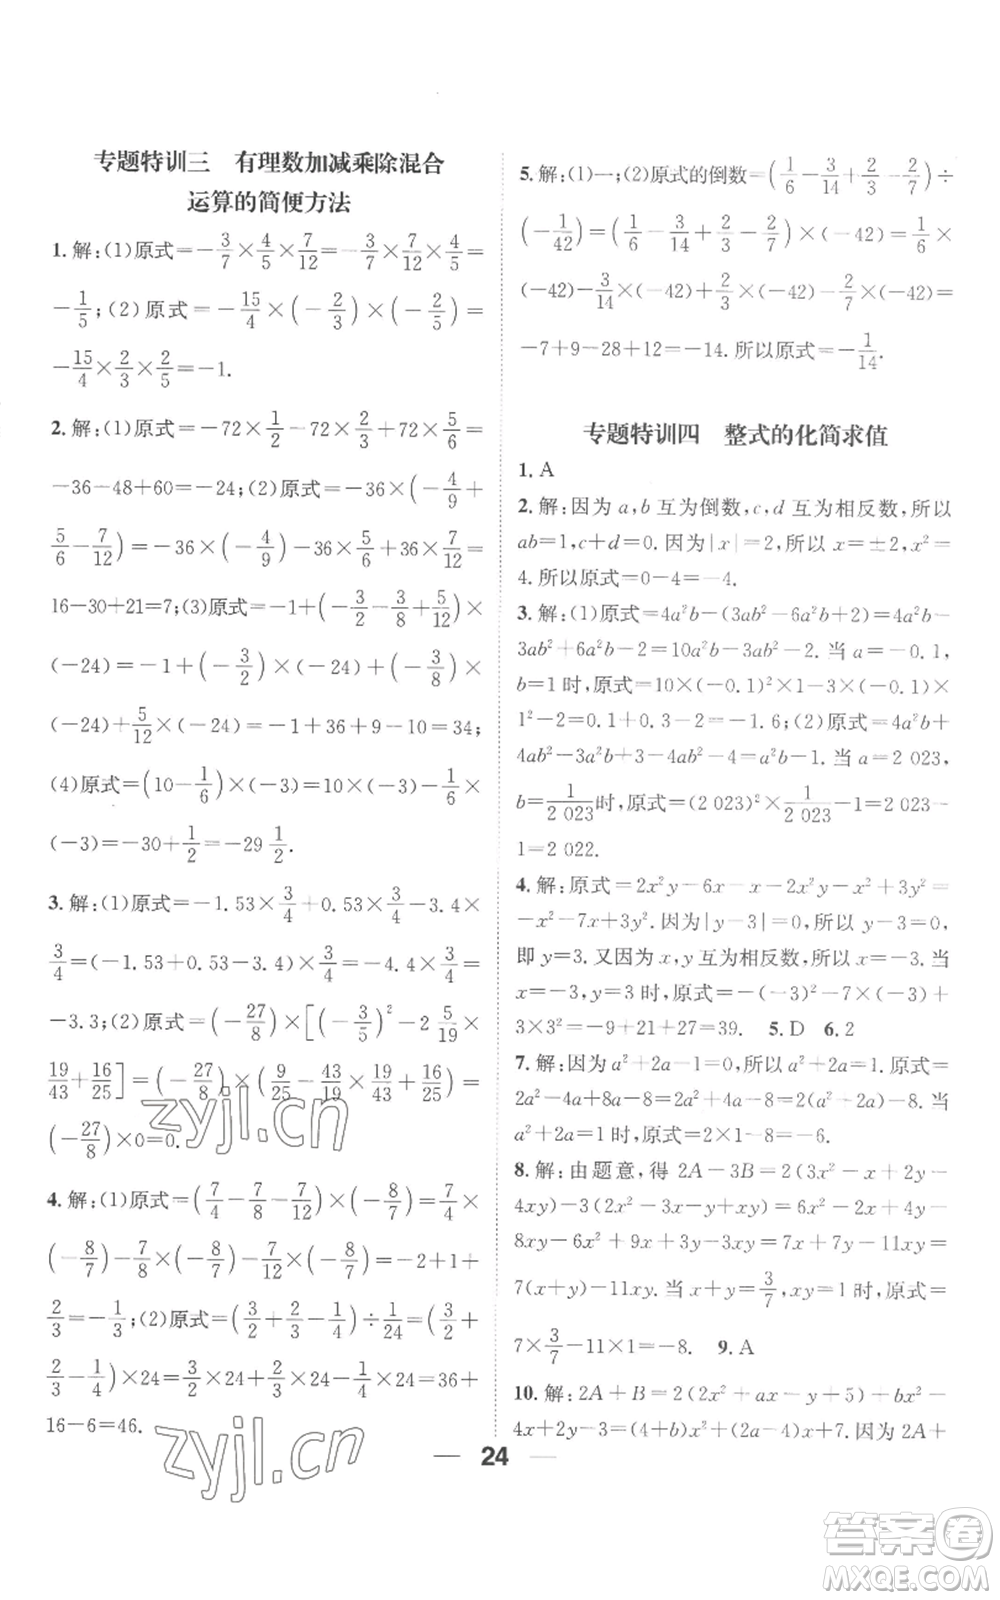 专题特训三 有理数加减乘除混合
运算的简便方法
1.解:(1)原式=-3/7×4/5×7/12=-3/7×7/12×4/5=
-1/5;(2)原式=-15/4×(-2/3)×(-2/5)=
-15/4×2/3×2/5=-1.
2.解:(1)原式=-72×1/2-72×2/3+72×5/6=
-36-48+60=-24;(2)原式=-36×(-4/9+
5/6-7/12)=-36×(-4/9)-36×5/6+36×7/12=
16-30+21=7;(3)原式=-1+(-3/2-3/8+5/12)×
(-24)=-1+(-3/2)×(-24)+(-3/8)×
(-24)+5/12×(-24)=-1+36+9-10=34;
(4)原式=(10-1/6)×(-3)=10×(-3)-1/6×
(-3)=-30+1/2=-29 1/2.
3.解:(1)原式=-1.53×3/4+0.53×3/4-3.4×
3/4=(-1.53+0.53-3.4)×3/4=-4.4×3/4=
-3.3;(2)原式=(-27/8)×[(-3/5)²-2 5/19×
19/43+16/25]=(-27/8)×(9/25-43/19×19/43+16/25)=
(-27/8)×0=0.
4.解:(1)原式=(7/4-7/8-7/12)×(-8/7)=7/4×
(-8/7)-7/8×(-8/7)-7/12×(-8/7)=-2+1+
2/3=-1/3;(2)原式=(3/2+2/3-1/4)÷1/24=(3/2+
2/3-1/4)×24=3/2×24+2/3×24-1/4×24=36+
16-6=46.
5.解:(1)一;(2)原式的倒数=(1/6-3/14+2/3-2/7)÷
(-1/42)=(1/6-3/14+2/3-2/7)×(-42)=1/6×
(-42)-3/14×(-42)+2/3×(-42)-2/7×(-42)=
-7+9-28+12=-14.所以原式=-1/14.
专题特训四 整式的化简求值
1.A
2.解:因为a,b互为倒数,c,d互为相反数,所以
ab=1,c+d=0.因为|x|=2,所以x=±2,x²=
4.所以原式=0-4=-4.
3.解:(1)原式=4a²b-(3ab²-6a²b+2)=4a²b-
3ab²+6a²b-2=10a²b-3ab²-2.当a=-0.1,
b=1时,原式=10×(-0.1)²×1-3×(-0.1)×
1²-2=0.1+0.3-2=-1.6;(2)原式=4a²b+
4ab²-3a²b-1-4ab²=a²b-1.当a=2 023,
b=1/2 023时,原式=(2 023)²×1/2 023-1=2 023-
1=2 022.
4.解:原式=2x²y-6x-x²-x-2x²y+3y²=
-x²-7x+3y².因为|y-3|=0,所以y-3=0,
即y=3.又因为x,y互为相反数,所以x=-3.当
x=-3,y=3时,原式=-(-3)²-7×(-3)+
3×3²=-9+21+27=39. 5.D 6.2
7.解:因为a²+2a-1=0,所以a²+2a=1.原式=
2a²-4a+8a-8=2a²+4a-8=2(a²+2a)-8.当
a²+2a=1时,原式=2×1-8=-6.
8.解:由题意,得2A-3B=2(3x²-x+2y-
4xy)-3(2x²-3x-y+xy)=6x²-2x+4y-
8xy-6x²+9x+3y-3xy=7x+7y-11xy=
7(x+y)-11xy.当x+y=3/7,xy=1时,原式=
7×3/7-11×1=-8. 9.A
10.解:2A+B=2(2x²+ax-y+5)+bx²-
4x+2y-1=(4+b)x²+(2a-4)x+9.因为2A+
24
zyjl.cn
zyjl.cn
答案卷
MXQE.COM